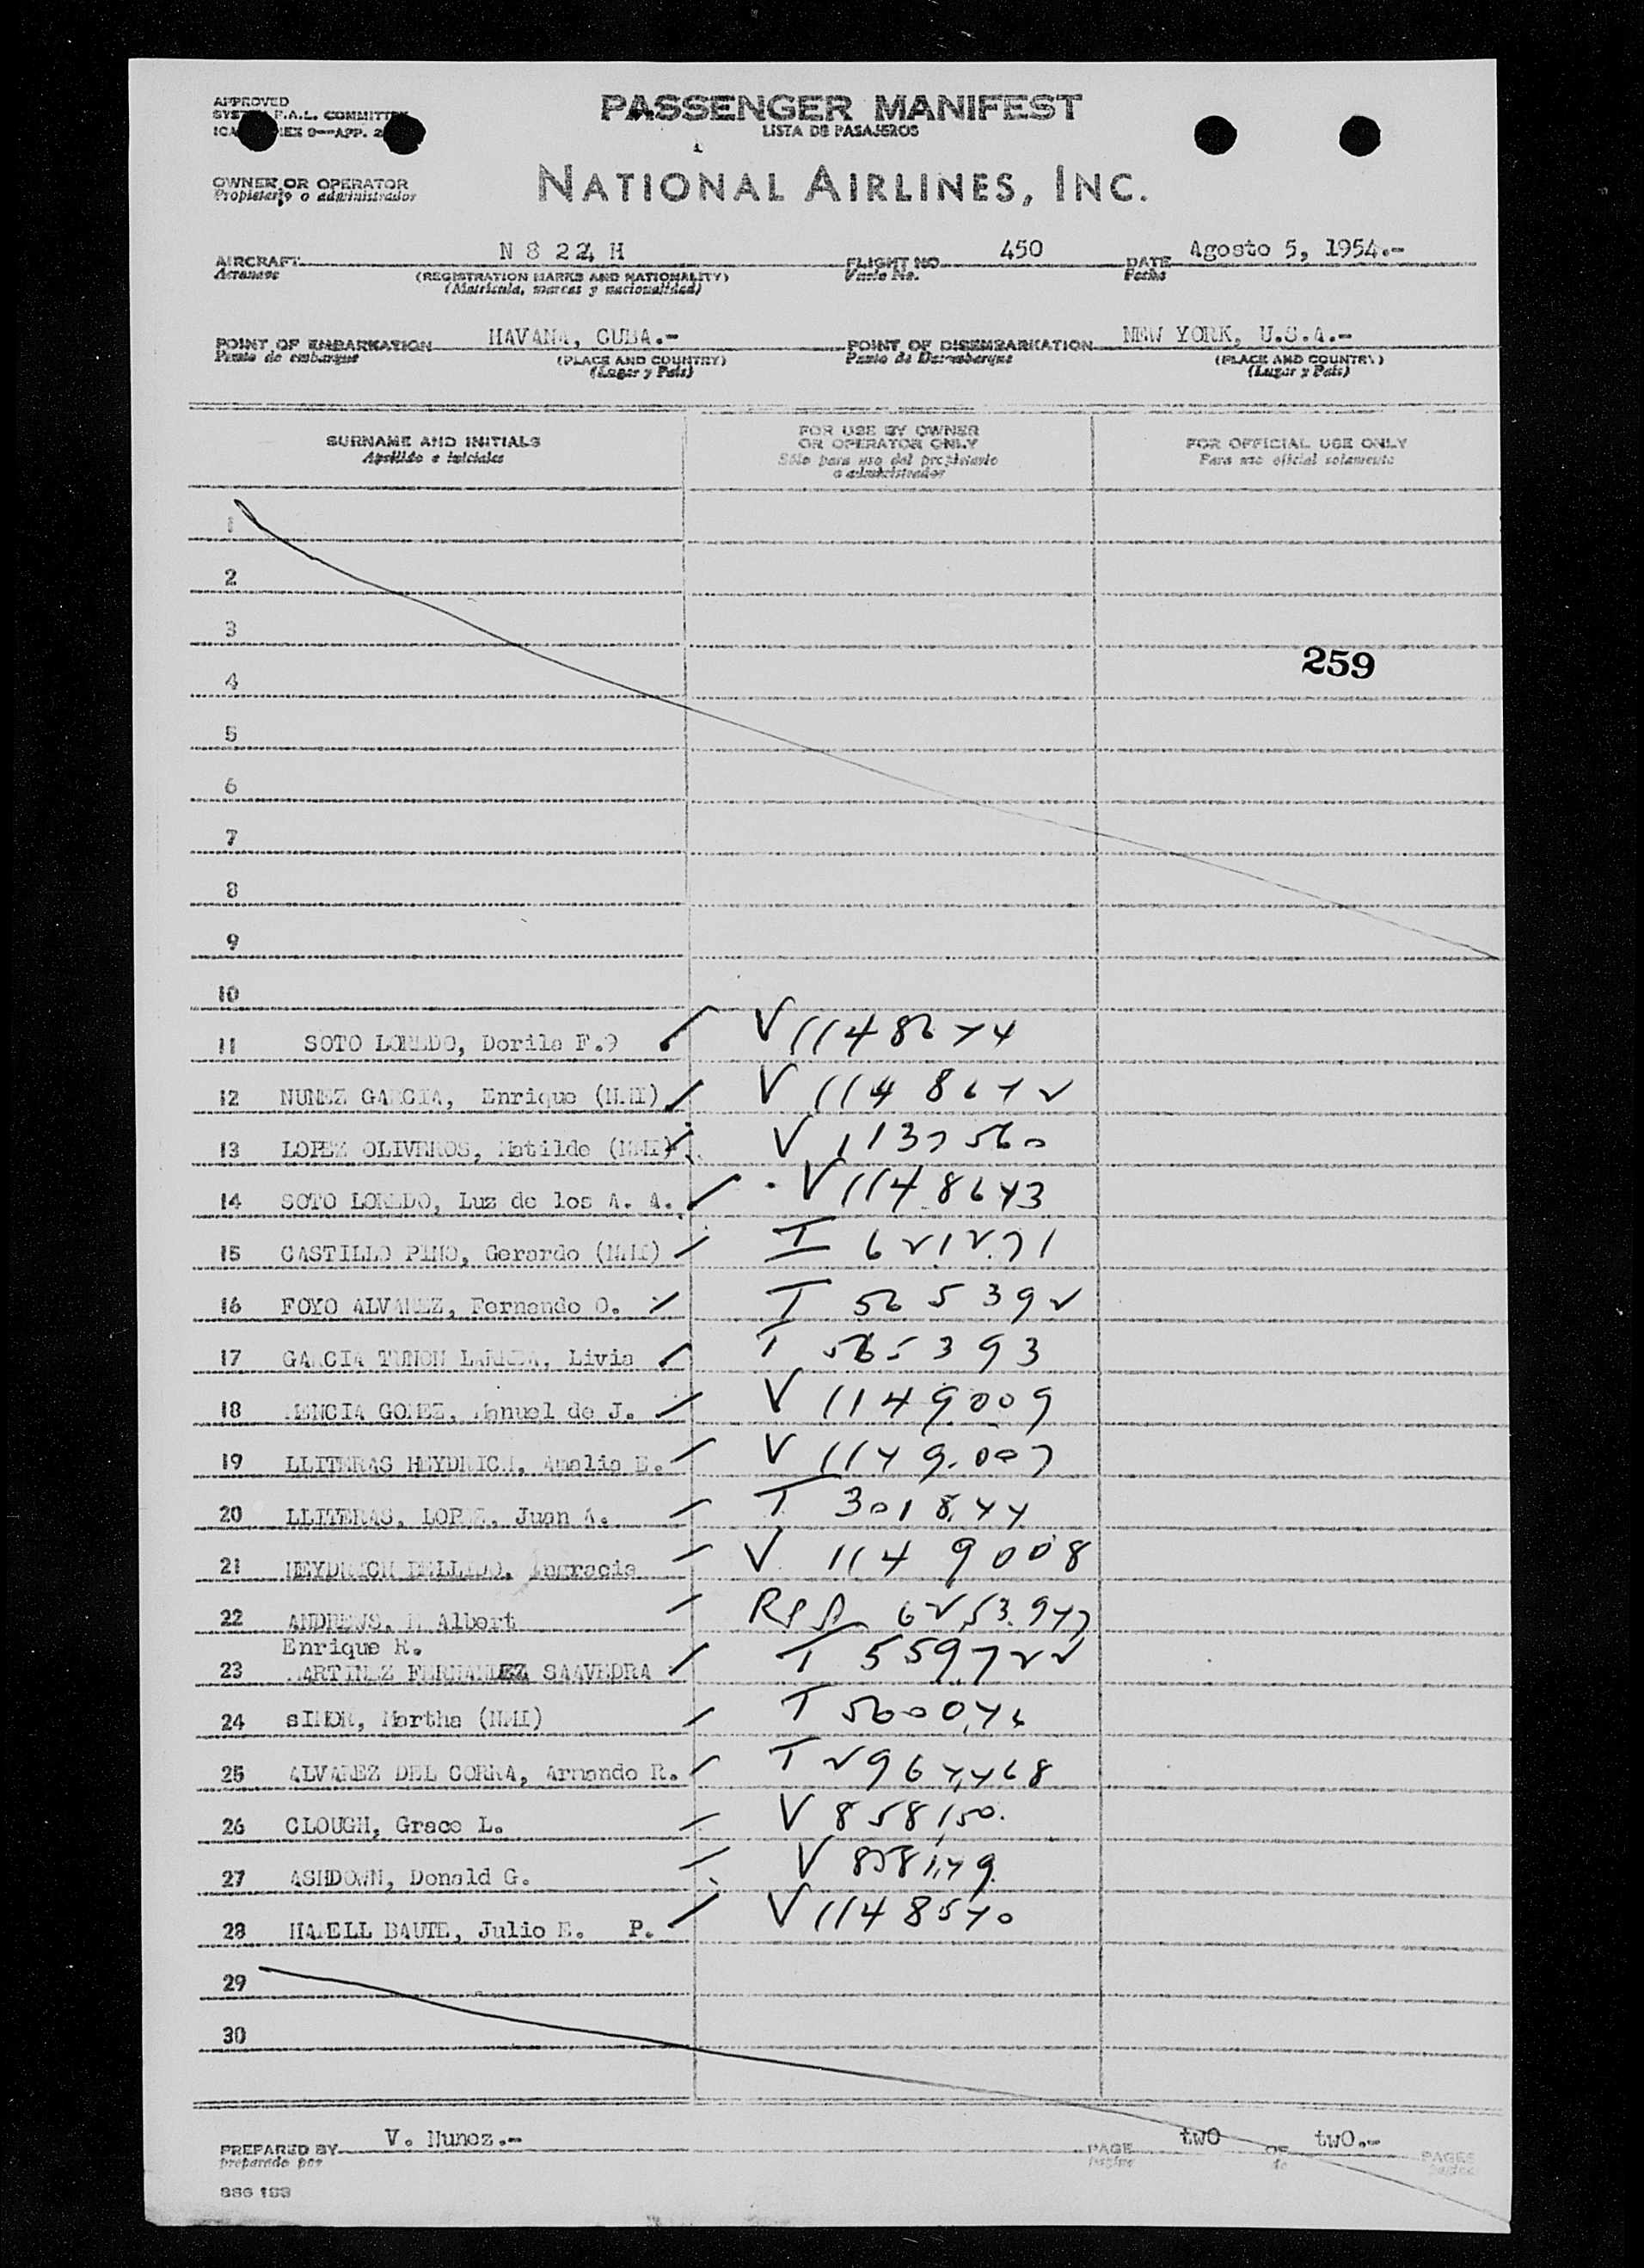 APPROVED
PASSENGER MANIFEST
LISTA DE PASAJEROS
OWNER OR OPERATOR
Propietario o administrador
NATIONAL AIRLINES, INC.
AIRCRAFT N 8 2 24 H FLIGHT NO. 450 DATE Agosto 5, 1954.-
Aeronave (REGISTRATION MARKS AND NATIONALITY) Vuelo No. Fecha
(Matrícula, marcas y nacionalidad)
POINT OF EMBARKATION HAVANA, CUBA.- POINT OF DISEMBARKATION NEW YORK, U.S.A.-
Punto de embarque (PLACE AND COUNTRY) Punto de Desembarque (PLACE AND COUNTRY)
(Lugar y País) (Lugar y País)
SURNAME AND INITIALS FOR USE BY OWNER OR OPERATOR ONLY FOR OFFICIAL USE ONLY
Apellido e iniciales Sólo para uso del propietario o administrador Para uso oficial solamente
1
2
3
259
4
5
6
7
8
9
10
11 SOTO LOREDO, Dorila F. V 1148674
12 NUNEZ GARCIA, Enrique (NMI) V 1148672
13 LOPEZ OLIVEROS, Matilde (NMI) V 1137560
14 SOTO LOREDO, Luz de los A. A. V 1148673
15 CASTILLO PINO, Gerardo (NMI) I 621271
16 FOYO ALVAREZ, Fernando O. I 565392
17 GARCIA TUNON LARREA, Livia T 565393
18 MENCIA GOMEZ, Manuel de J. V 1149009
19 LLITERAS HEYDRICH, Amalia E. V 1149007
20 LLITERAS, LOPEZ, Juan A. T 301844
21 HEYDRICH BELLIDO, Engracia V 1149008
22 ANDREWS, Albert
Enrique R.
23 MARTINEZ FERNANDEZ SAAVEDRA T 559722
24 SIMON, Martha (NMI) T 560046
25 ALVAREZ DEL CORRA, Armando R.
26 CLOUGH, Grace L. V 858150
27 ASHDOWN, Donald G. V 858149
28 BAUTE, Julio E. P. V 1148570
29
30
PREPARED BY V. Nunez.- PAGE two OF two.- PAGES
preparado por